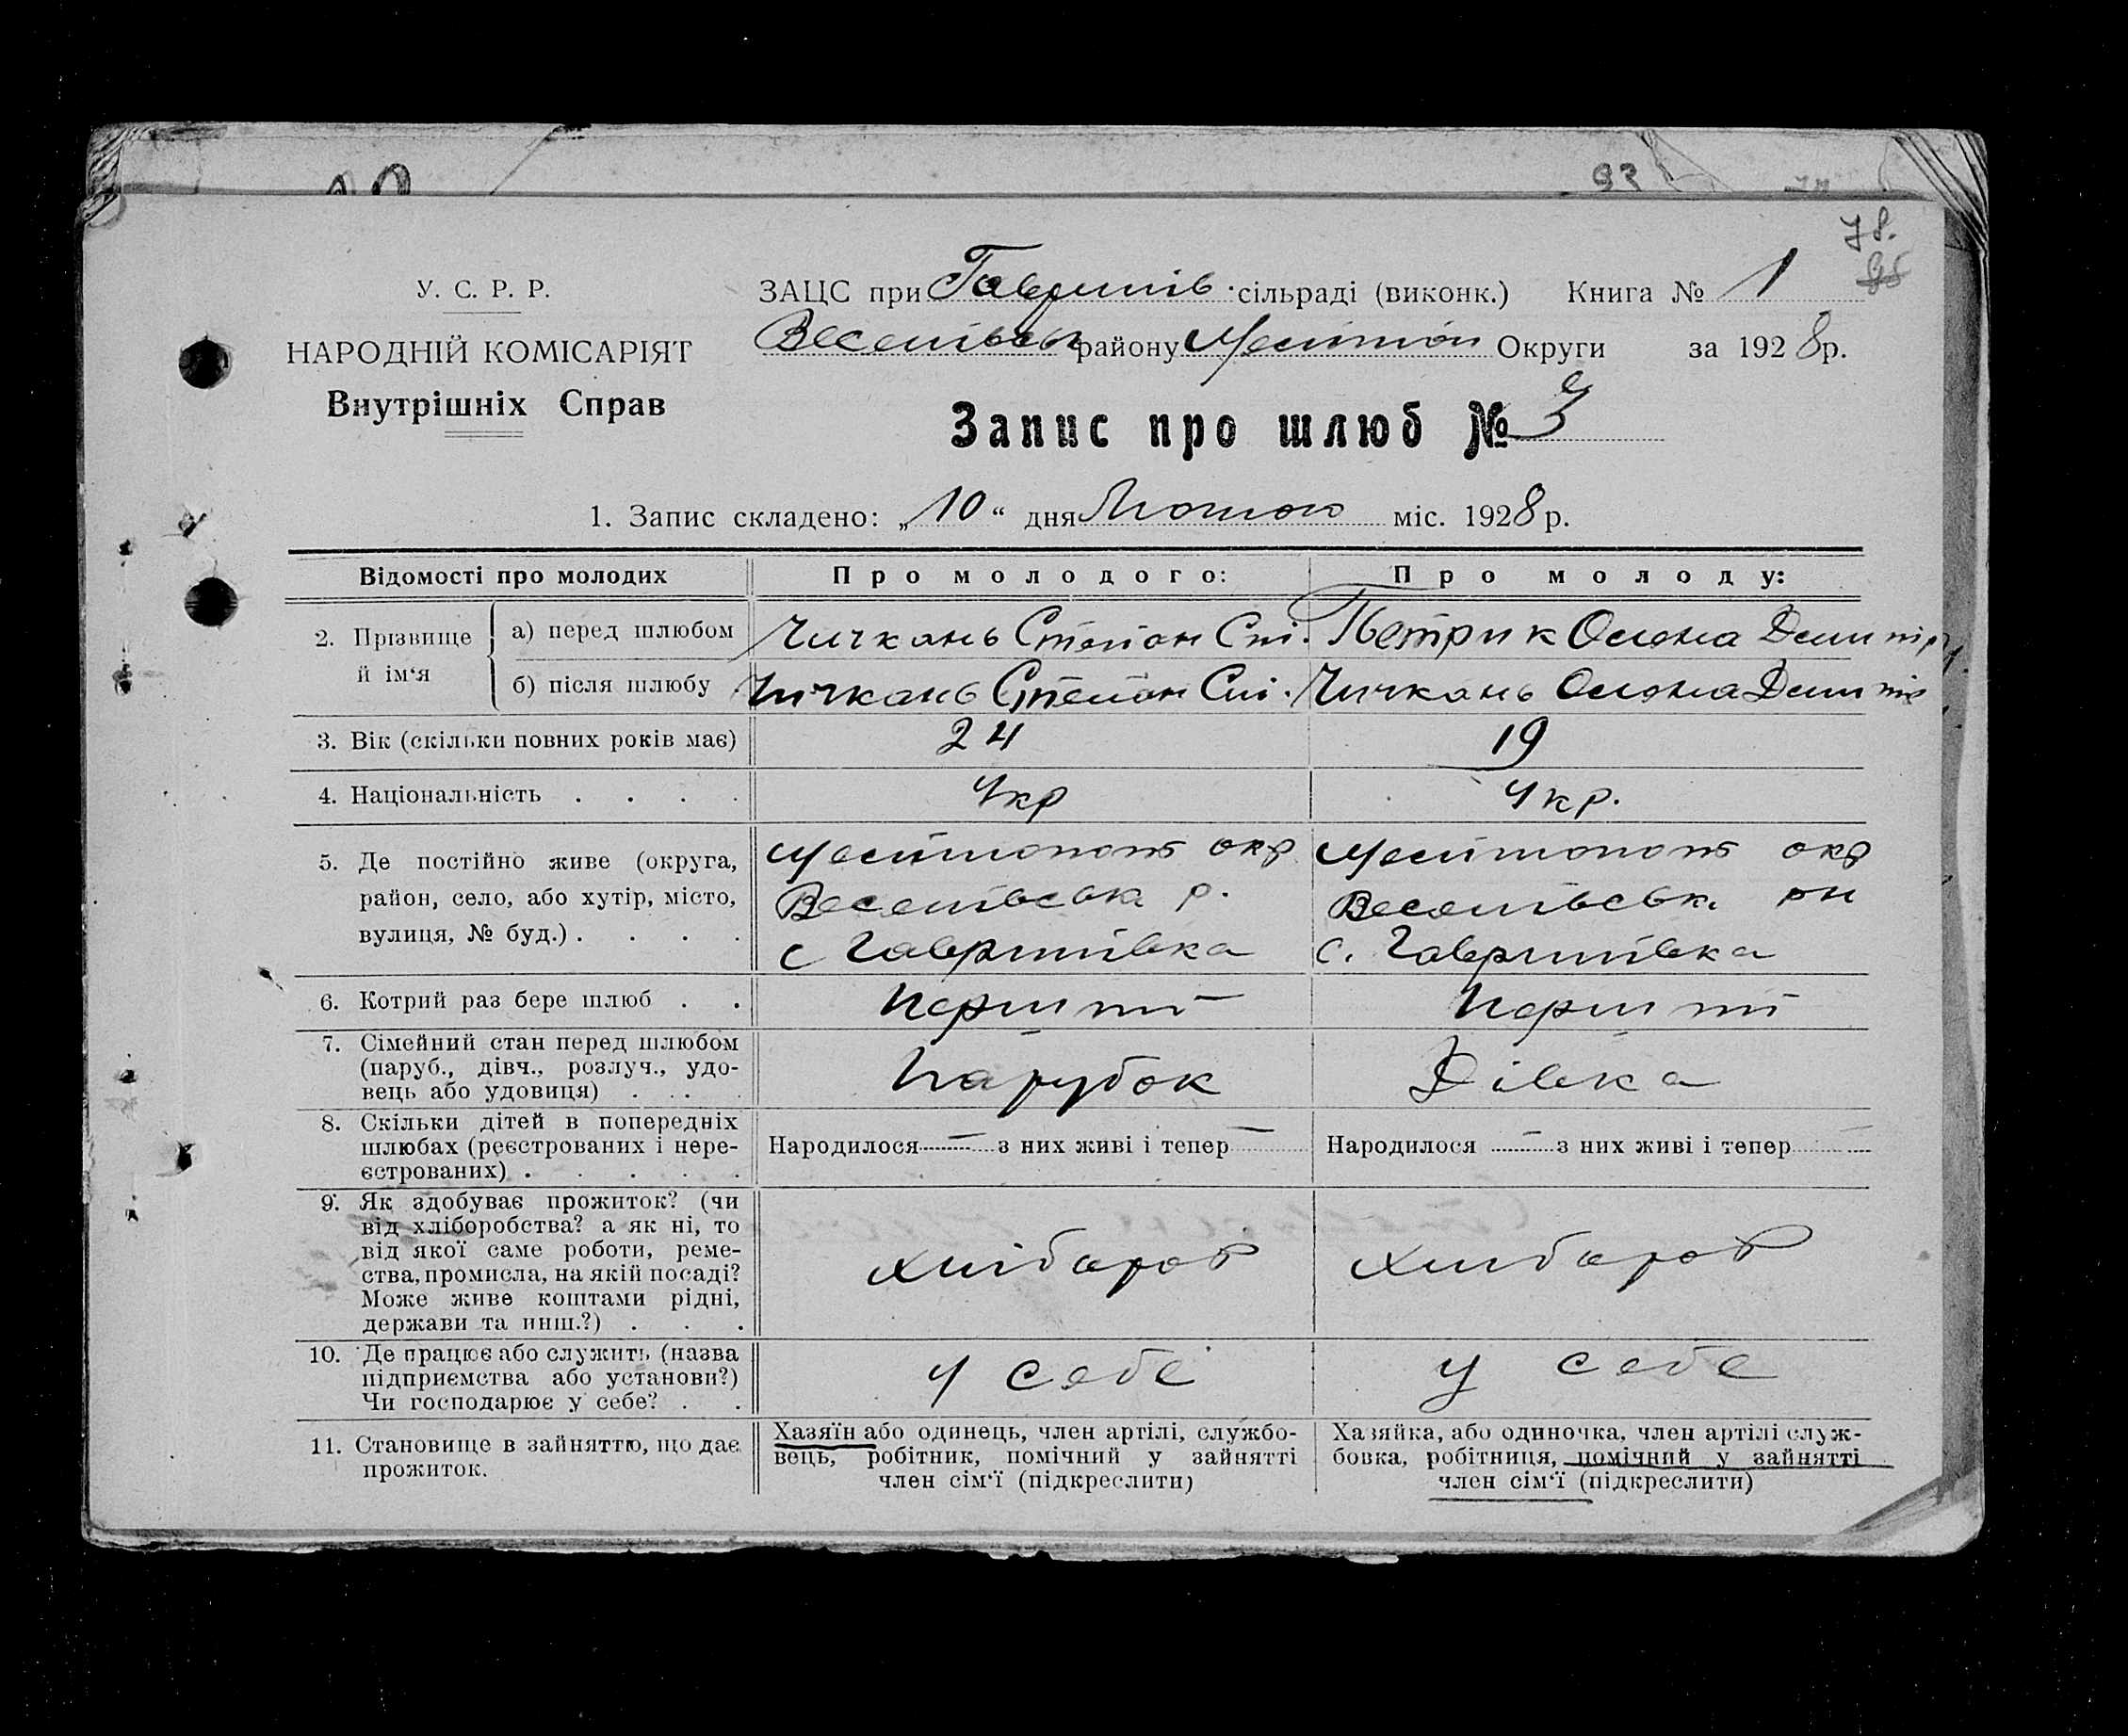 93
78.
95
У. С. Р. Р.
НАРОДНІЙ КОМІСАРІЯТ
Внутрішніх Справ
ЗАЦС при Гаврилів. сільраді (виконк.) Книга № 1
Веселівськ району Мелітоп Округи за 1928 р.
Запис про шлюб № 3
1. Запис складено: „10“ дня Лютого міс. 1928 р.
Відомості про молодих
Про молодого:
Про молоду:
2. Прізвище й ім‘я
а) перед шлюбом
Чичкань Степан Сп.
Петрик Олена Дмитр
б) після шлюбу
Чичкань Степан Сп.
Чичкань Олена Дмитр
3. Вік (скільки повних років має)
24
19
4. Національність . . . .
Укр
Укр.
5. Де постійно живе (округа,
район, село, або хутір, місто,
вулиця, № буд.) . . . .
Мелітопол окр
Веселівськ р.
с Гаврилівка
Мелітопол окр
Веселівськ рн
с. Гаврилівка
6. Котрий раз бере шлюб . .
Перший
Перший
7. Сімейний стан перед шлюбом
(паруб., дівч., розлуч., удо-
вець або удовиця) . . .
Парубок
Дівка
8. Скільки дітей в попередніх
шлюбах (реєстрованих і нере-
єстрованих) . . . . .
Народилося — з них живі і тепер —
Народилося — з них живі і тепер —
9. Як здобуває прожиток? (чи
від хліборобства? а як ні, то
від якої саме роботи, реме-
ства, промисла, на якій посаді?
Може живе коштами рідні,
держави та инш.?) . . .
хлібороб
хлібороб
10. Де працює або служить (назва
підприємства або установи?)
Чи господарює у себе? . .
у себе
у себе
11. Становище в зайняттю, що дає
прожиток.
Хазяїн або одинець, член артілі, службо-
вець, робітник, помічний у зайнятті
член сім‘ї (підкреслити)
Хазяйка, або одиночка, член артілі служ-
бовка, робітниця, помічний у зайнятті
член сім‘ї (підкреслити)